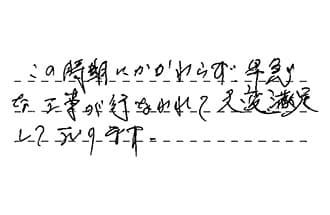 この時期にかかわらず早急
な工事が行なわれて大変満足
しております。